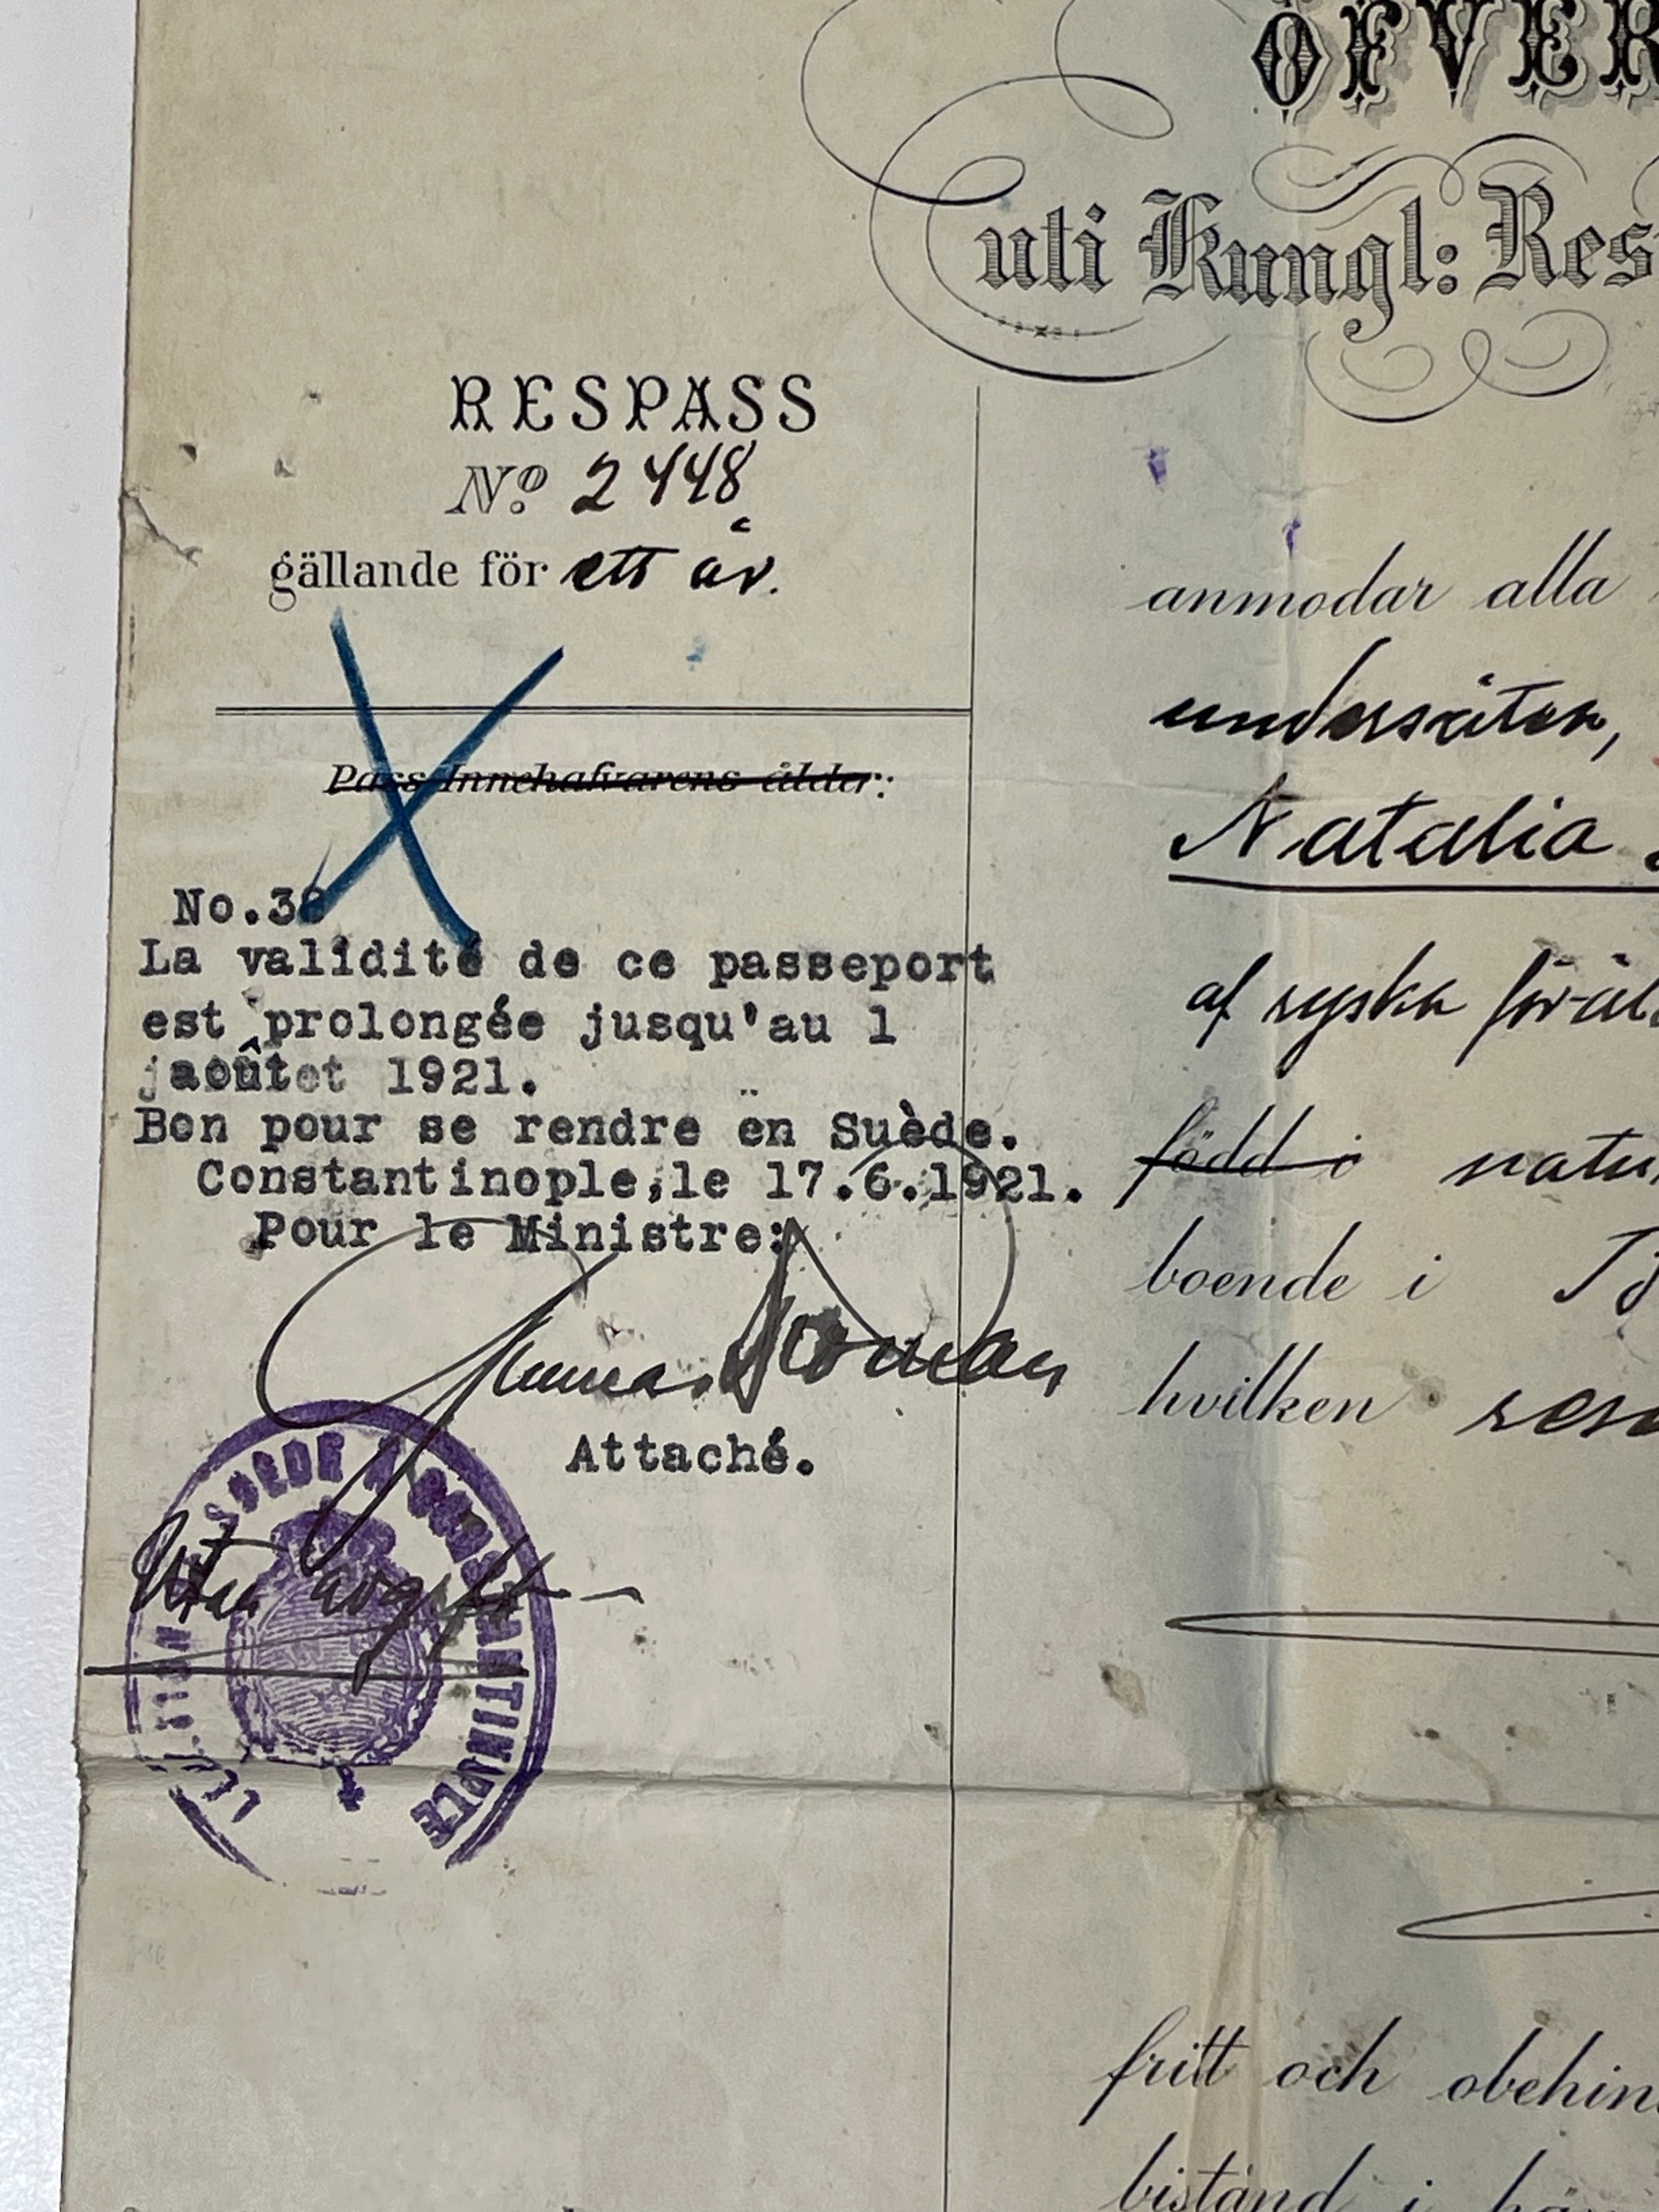 ÖFVER
uti Kungl: Res
RESPASS
No. 2448
gällande för ett år.
Pass-Innehafvarens ålder:
No.38
La validité de ce passeport
est prolongée jusqu'au 1
août 1921.
Bon pour se rendre en Suède.
Constantinople, le 17.6.1921.
Pour le Ministre:
Attaché.
Utan avgift
SUEDE A CONSTANTINOPLE
anmodar alla
undersåten,
Natalia
af ryska föräl
född i natur
boende i
hvilken resa
fritt och obehin
bistånd i